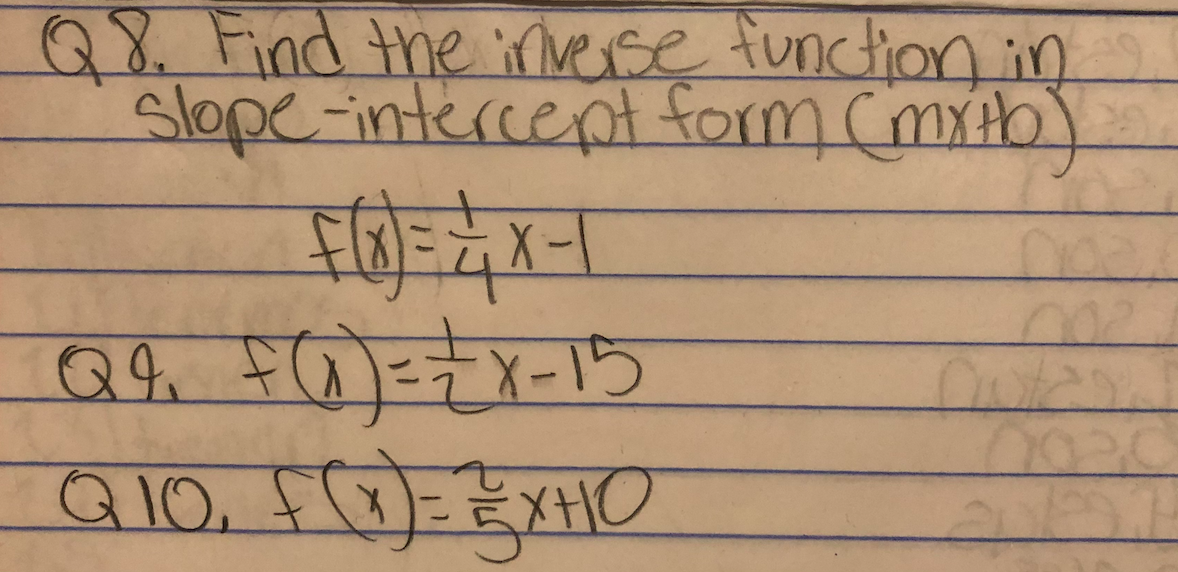 Q8. Find the inverse function in
slope-intercept form (mx+b)
f(x)=1/4 x-1
Q9. f(x)=1/2 x-15
Q10. f(x)=2/5 x+10